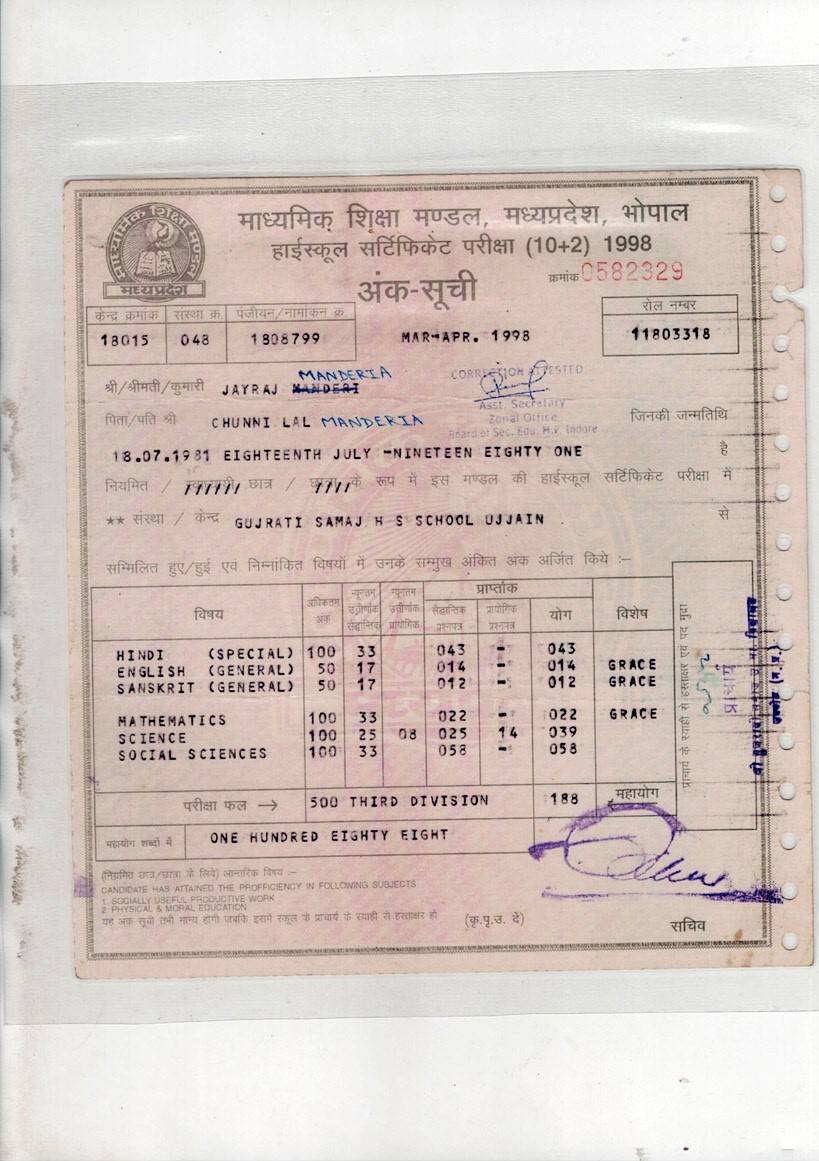 माध्यमिक शिक्षा मण्डल, मध्यप्रदेश, भोपाल
हाईस्कूल सर्टिफिकेट परीक्षा (10+2) 1998
माध्यमिक शिक्षा मण्डल
मध्यप्रदेश
क्रमांक 0582329
अंक-सूची
केन्द्र क्रमांक संस्था क्र. पंजीयन/नामांकन क्र. रोल नम्बर
18015 048 1808799 MAR-APR. 1998 11803318
MANDERIA CORRECTION ATTESTED
श्री/श्रीमती/कुमारी JAYRAJ MANDERI
Asst. Secretary
पिता/पति श्री CHUNNI LAL MANDERIA Zonal Office जिनकी जन्मतिथि
Board of Sec. Edu. M.P. Indore
18.07.1981 EIGHTEENTH JULY -NINETEEN EIGHTY ONE है
नियमित / स्वाध्यायी छात्र / छात्रा के रूप में इस मण्डल की हाईस्कूल सर्टिफिकेट परीक्षा में
** संस्था / केन्द्र GUJRATI SAMAJ H S SCHOOL UJJAIN . से
सम्मिलित हुए/हुई एवं निम्नांकित विषयों में उनके सम्मुख अंकित अंक अर्जित किये :-
विषय अधिकतम अंक न्यूनतम उत्तीर्णांक सैद्धान्तिक न्यूनतम उत्तीर्णांक प्रायोगिक प्राप्तांक विशेष
सैद्धान्तिक प्रश्नपत्र प्रायोगिक प्रश्नपत्र योग
HINDI (SPECIAL) 100 33 043 - 043
ENGLISH (GENERAL) 50 17 014 - 014 GRACE
SANSKRIT (GENERAL) 50 17 012 - 012 GRACE
MATHEMATICS 100 33 022 - 022 GRACE
SCIENCE 100 25 08 025 14 039
SOCIAL SCIENCES 100 33 058 - 058
परीक्षा फल → 500 THIRD DIVISION 188 महायोग
महायोग शब्दों में ONE HUNDRED EIGHTY EIGHT
प्राचार्य के स्याही से हस्ताक्षर एवं पद मुद्रा
प्राचार्य
(नियमित छात्र/छात्रा के लिये) आन्तरिक विषय :-
CANDIDATE HAS ATTAINED THE PROFFICIENCY IN FOLLOWING SUBJECTS
1. SOCIALLY USEFUL PRODUCTIVE WORK
2. PHYSICAL & MORAL EDUCATION
यह अंक सूची तभी मान्य होगी जबकि इसमें स्कूल के प्राचार्य के स्याही से हस्ताक्षर हो (कृ.पृ.उ. दे)
सचिव